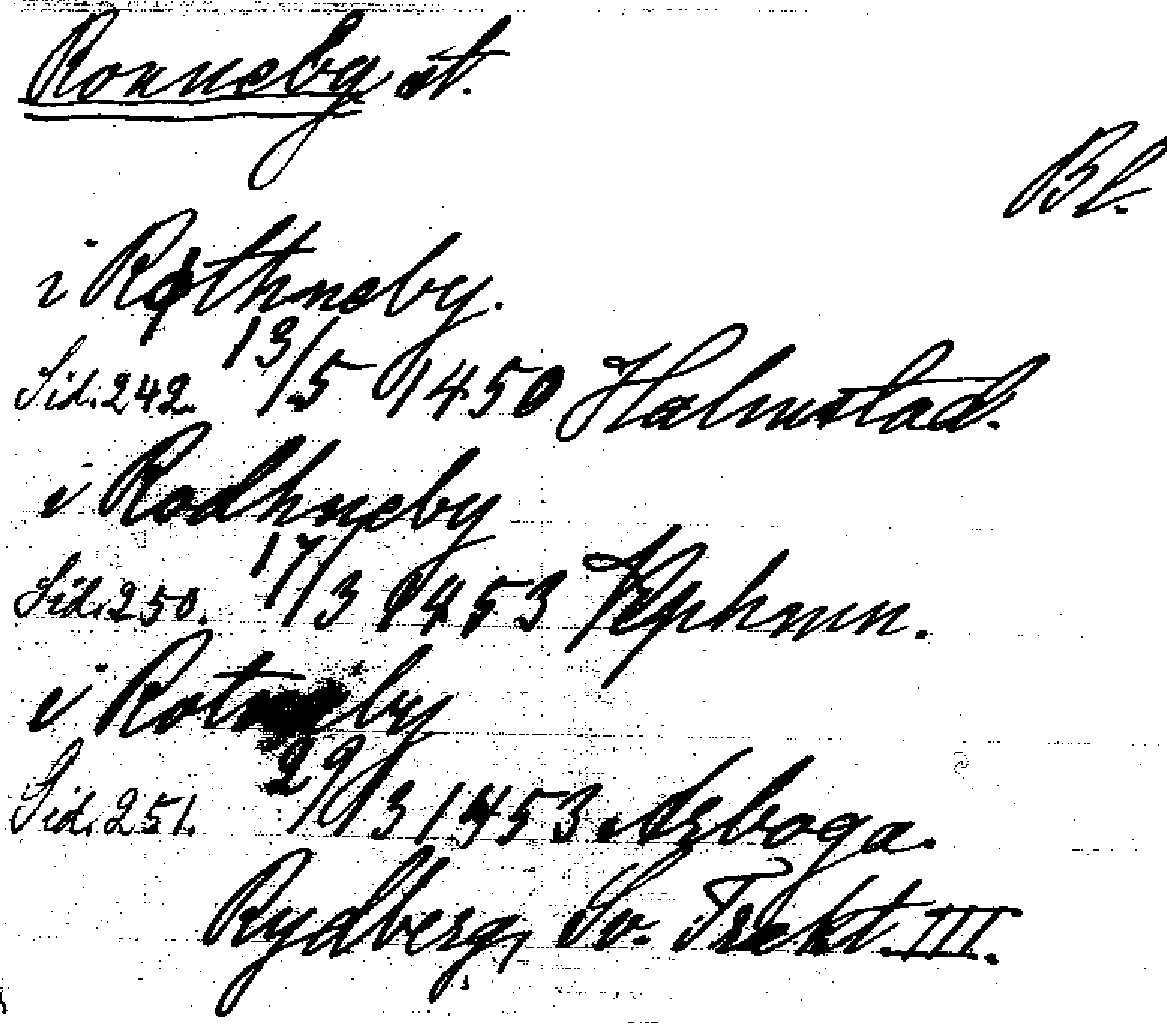 Ronneby st.
Bl.
i Rothneby.
Sid. 242. 13/5 1450 Halmstad.
i Rodhneby
Sid. 250. 17/3 1453 Kphmn.
i Rotneby
Sid. 251. 29/3 1453 Arboga.
Rydberg, Sv. Trakt. III.